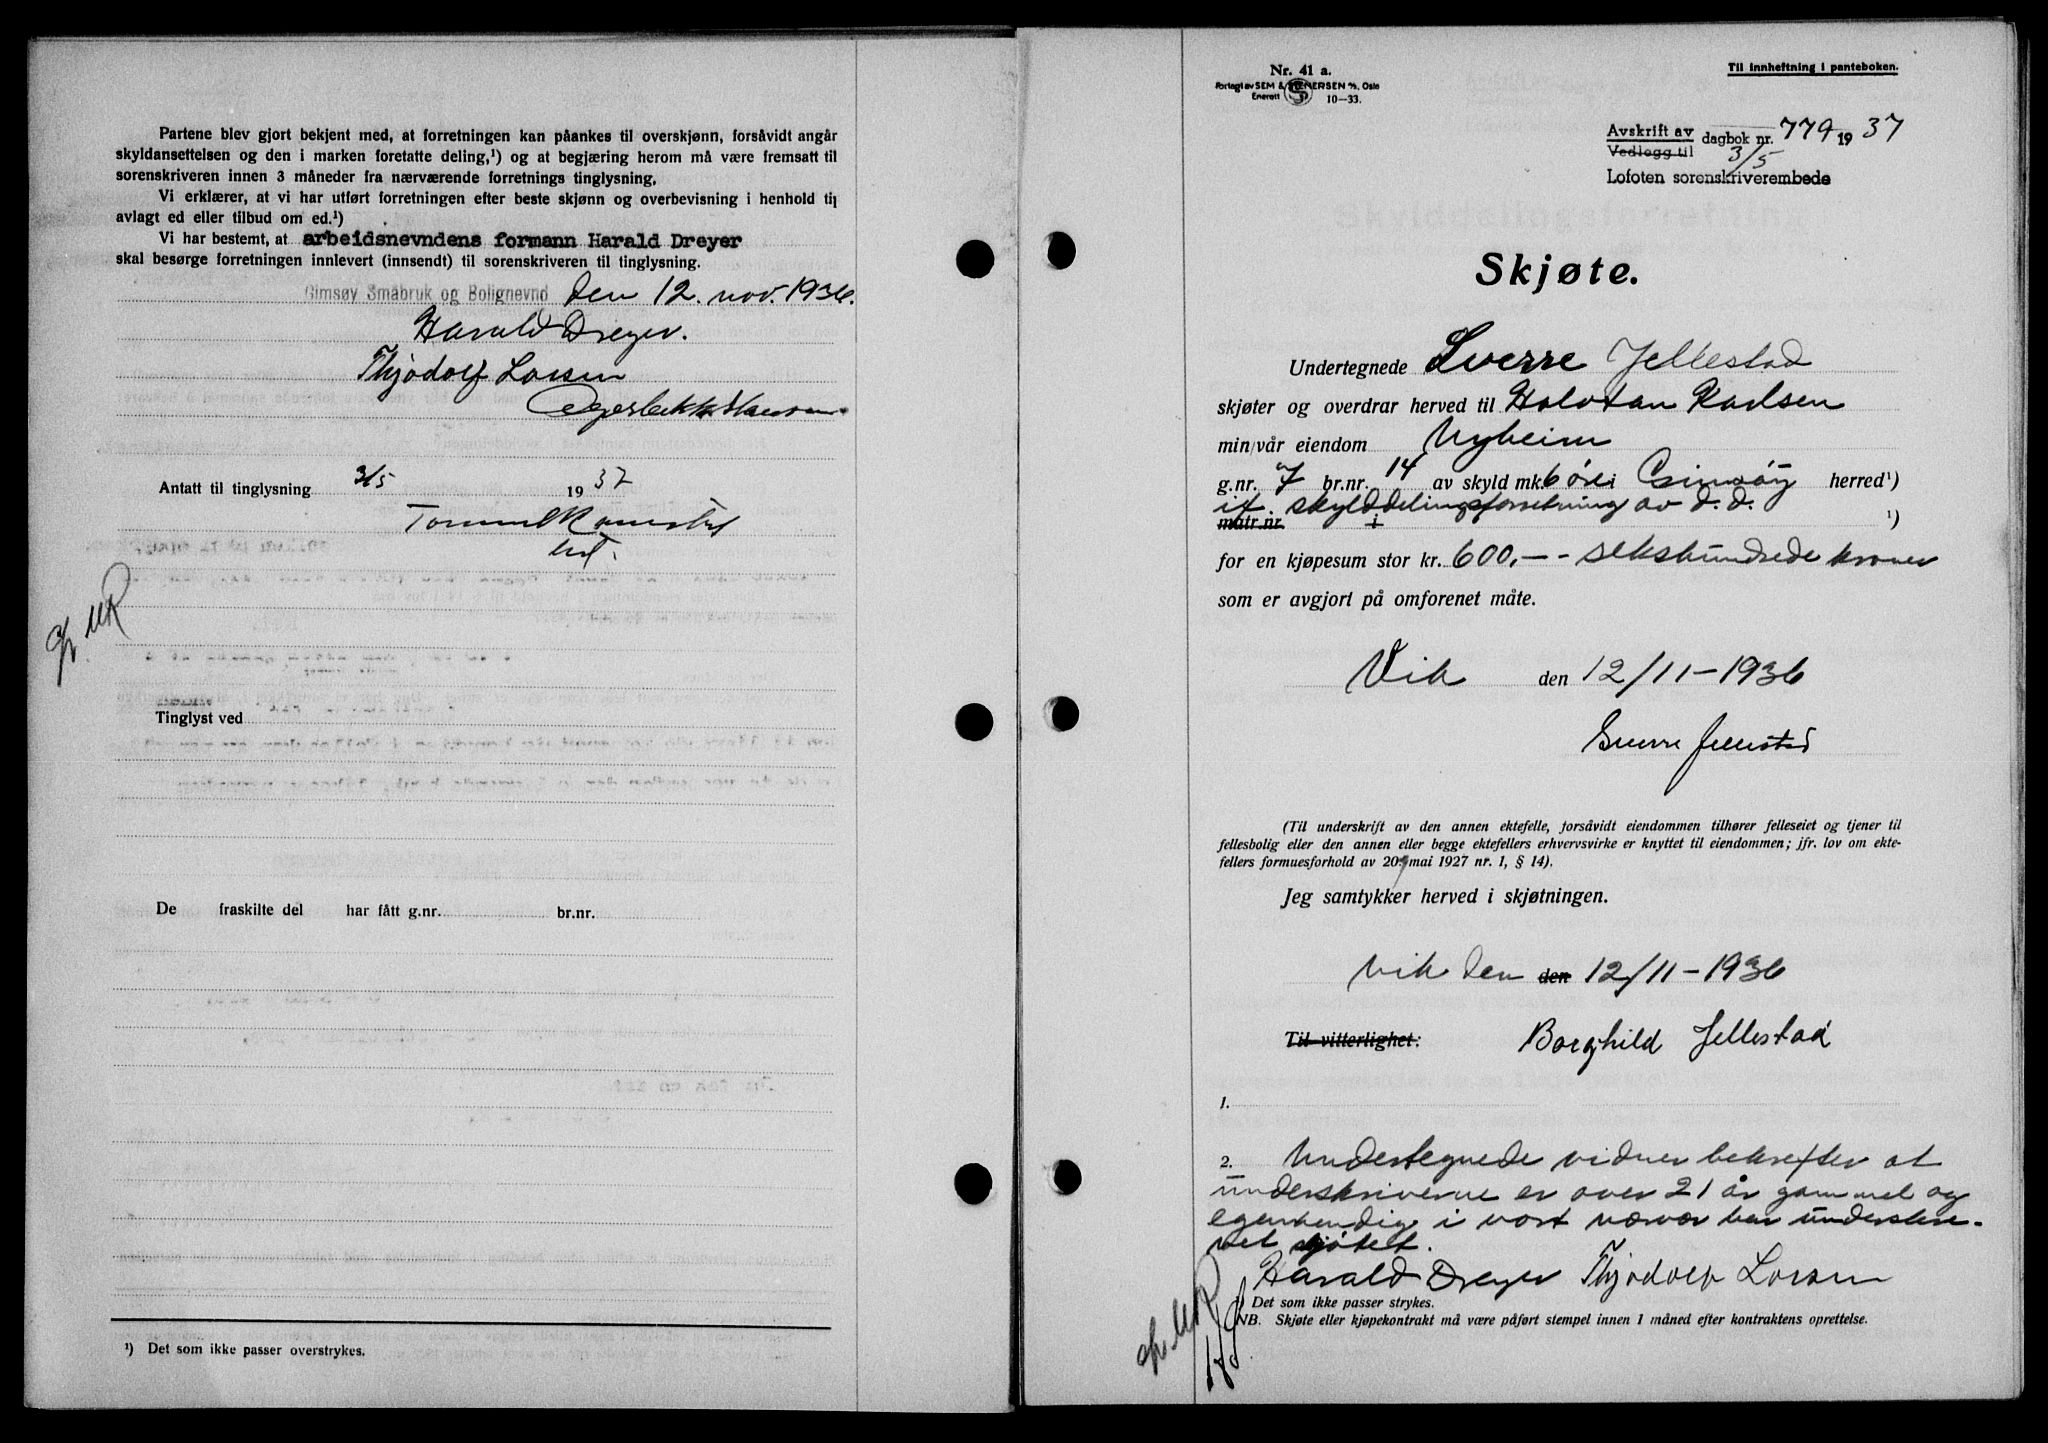 Partene blev gjort bekjent med, at forretningen kan påankes til overskjønn, forsåvidt angår
skyldansettelsen og den i marken foretatte deling,¹) og at begjæring herom må være fremsatt til
sorenskriveren innen 3 måneder fra nærværende forretnings tinglysning.
Vi erklærer, at vi har utført forretningen efter beste skjønn og overbevisning i henhold til
avlagt ed eller tilbud om ed.¹)
Vi har bestemt, at arbeidsnevndens formann Harald Dreyer
skal besørge forretningen innlevert (innsendt) til sorenskriveren til tinglysning.
Gimsøy Småbruk og Bolignevnd den 12. nov. 1936.
Harald Dreyer.
Thjodolf Larsen
Antatt til tinglysning 3/5 1937
Tinglyst ved
De fraskilte del har fått g.nr. br.nr.
¹) Det som ikke passer overstrykes.
Nr. 41 a.
Forlagt av SEM & STENERSEN A/S, Oslo
Enerett 10—33.
Til innheftning i panteboken.
Avskrift av dagbok nr. 779 1937
Vedlegg til 3/5
Lofoten sorenskriverembede
Skjøte.
Undertegnede Sverre Jellestad
skjøter og overdrar herved til Halvdan Karlsen
min/vår eiendom Nyheim
g.nr. 7 br.nr. 14 av skyld mk. 6 øre i Gimsøy herred¹)
if. skylddelingsforretning av d.d.
matr.nr. i ¹)
for en kjøpesum stor kr. 600,— - sekshundrede kroner
som er avgjort på omforenet måte.
Vik den 12/11-1936
Sverre Jellestad
(Til underskrift av den annen ektefelle, forsåvidt eiendommen tilhører felleseiet og tjener til
fellesbolig eller den annen eller begge ektefellers erhvervsvirke er knyttet til eiendommen; jfr. lov om ekte-
fellers formuesforhold av 20. mai 1927 nr. 1, § 14).
Jeg samtykker herved i skjøtningen.
Vik den den 12/11-1936
Til vitterlighet: Borghild Jellestad
1.
2. Undertegnede vidner bekrefter at
underskriverne er over 21 år gammel og
egenhendig i vort nærvær har underskre-
vet skjøtet.
Harald Dreyer Thjodolf Larsen
¹) Det som ikke passer strykes.
NB. Skjøte eller kjøpekontrakt må være påført stempel innen 1 måned efter kontraktens oprettelse.